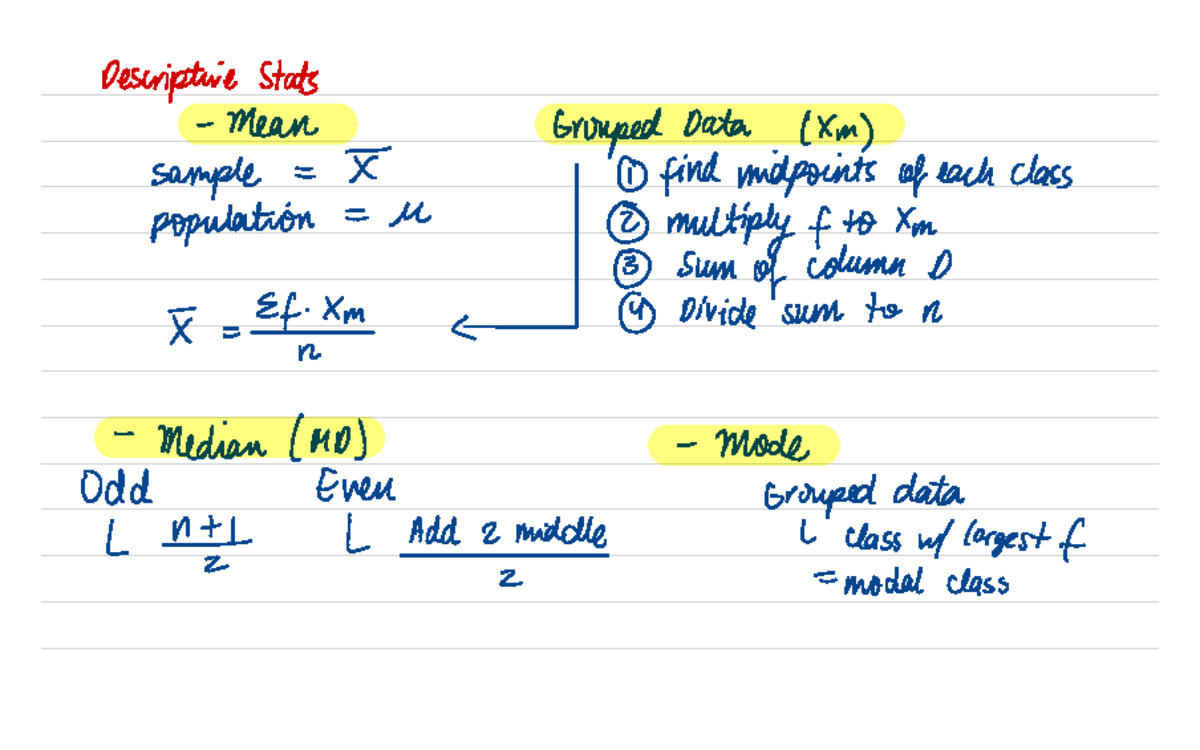 Descriptive Stats
- Mean
sample = X̅
population = μ
X̅ = Σf · Xm / n
Grouped Data (Xm)
① find midpoints of each class
② multiply f to Xm
③ Sum of column D
④ Divide sum to n
- Median (MD)
Odd
└ n+1 / 2
Even
└ Add 2 middle / 2
- Mode
Grouped data
└ class w/ largest f
= modal class